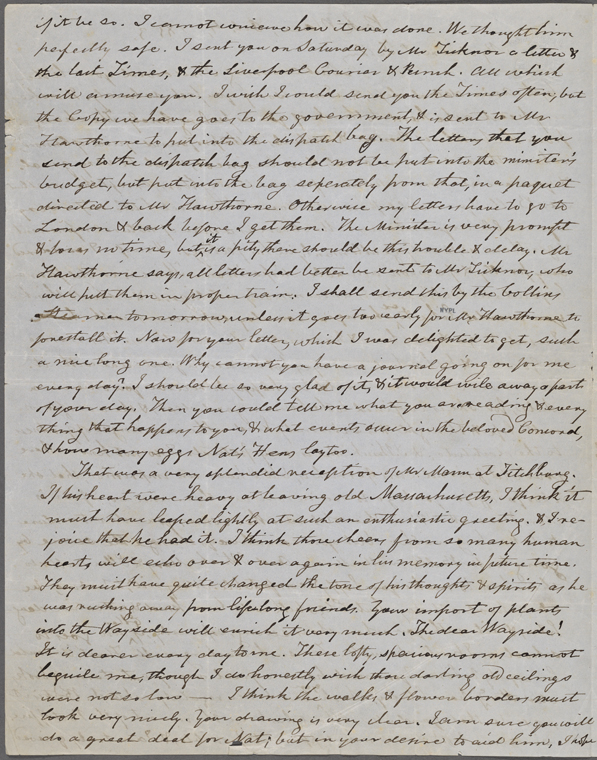 if it be so. I cannot conceive how it was done. We thought him
perfectly safe. I sent you on Saturday by Mr Ticknor a letter &
the last Times, & the Liverpool Courier & Punch. All which
will amuse you. I wish I could send you the Times often, but
the Copy we have goes to the government, & is sent to Mr
Hawthorne to put into the dispatch bag. The letters that you
send to the dispatch bag should not be put into the minister's
budget, but put into the bag seperately from that, in a paquet
directed to Mr Hawthorne. Otherwise my letters have to go to
London & back before I get them. The Minister is very prompt
& loses no time, but it is a pity there should be this trouble & delay. Mr
Hawthorne says, all letters had better be sent to Mr Ticknor, who
will put them in proper train. I shall send this by the Collins
steamer tomorrow, unless it goes too early for Mr Hawthorne to
NYPL
forestall it. Now for your letter, which I was delighted to get, such
a nice long one. Why cannot you have a journal going on for me
every day? I should be so very glad of it, & it would wile away a part
of your day. Then you could tell me what you are reading & every
thing that happens to you, & what events occur in the beloved Concord,
& how many eggs Nat's Hens lay too.
That was a very splendid reception of Mr Mann at Fitchburg.
If his heart were heavy at leaving old Massachusetts, I think it
must have leaped lightly at such an enthusiastic greeting. & I re-
joice that he had it. I think those cheers from so many human
hearts will echo over & over again in his memory in future time.
They must have quite changed the tone of his thoughts & spirits as he
was rushing away from lifelong friends. Your import of plants
into the Wayside will enrich it very much. The dear Wayside!
It is dearer every day to me. These lofty, spacious rooms cannot
beguile me, though I do honestly wish those darling old ceilings
were not so low — I think the walks & flower borders must
look very nicely. Your drawing is very clear. I am sure you will
do a great deal for Nat; but in your desire to aid him, I